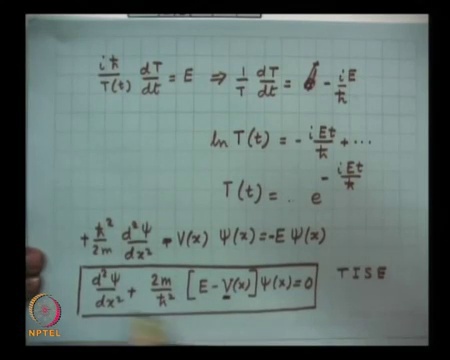 iħ/T(t) dT/dt = E ⇒ 1/T dT/dt = - iE/ħ
ln T(t) = - iEt/ħ + ...
T(t) = . e^(- iEt/ħ)
+ ħ²/2m d²Ψ/dx² - V(x) Ψ(x) = -E Ψ(x)
d²Ψ/dx² + 2m/ħ² [E - V(x)] Ψ(x) = 0 TISE
NPTEL